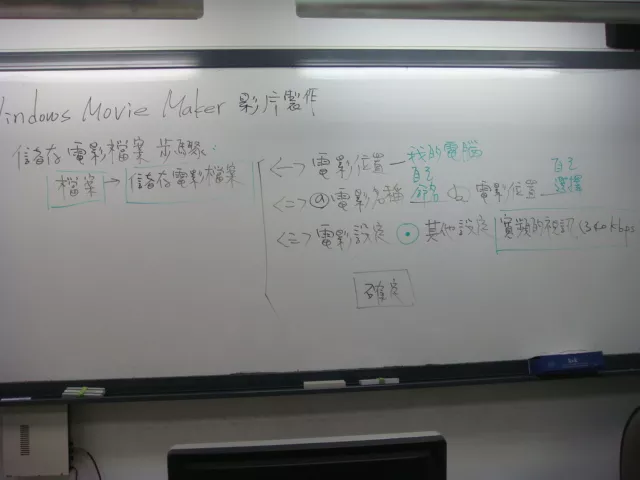 Windows Movie Maker 影片製作
儲存電影檔案步驟:
檔案 → 儲存電影檔案
<一> 電影位置 — 我的電腦
<二> ⓐ 電影名稱 自己命名 ⓑ 電影位置 自己選擇
<三> 電影設定 ⊙ 其他設定 寬頻的視訊 (340kbps
確定